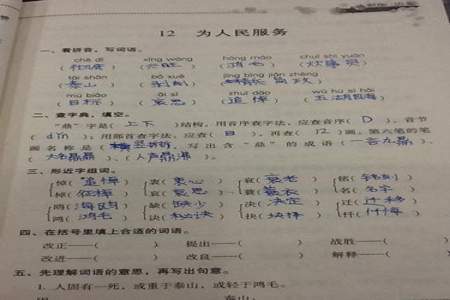 12 为人民服务
一、看拼音，写词语。
chè dǐ xīng wàng hóng máo chuī shì yuán
(彻底) (兴旺) (鸿毛) (炊事员)
tài shān bō xuē jīng bīng jiǎn zhèng
(泰山) (剥削) (精兵简政)
mù biāo āi sī zhuī dào wǔ hú sì hǎi
(目标) (哀思) (追悼) (五湖四海)
二、查字典，填空。
“鼎”字是(上下)结构，用音序查字法，应查音序(D)，音节
(dǐng)；用部首查字法，应查(目)，再查(12)画，第六笔的笔
画名称是(竖折折)，写出含“鼎”的成语(一言九鼎)、
(大名鼎鼎)、(人声鼎沸)。
三、形近字组词。
悼(追悼) 衷(衷心) 衰(衰老) 铭(铭刻)
掉( ) 哀(哀思) 蓑(蓑衣) 名(名字)
鸥(海鸥) 缺(缺少) 决(决定) 迁(迁移)
鸿(鸿毛) 诀(秘诀) 抉(抉择) 歼( )
四、在括号里填上合适的词语。
改正——( ) 提出——( ) 战胜——(
改进——( ) 改良——( ) 解释——(
五、先理解词语的意思，再写出句意。
1. 人固有一死，或重于泰山，或轻于鸿毛。
泰山：